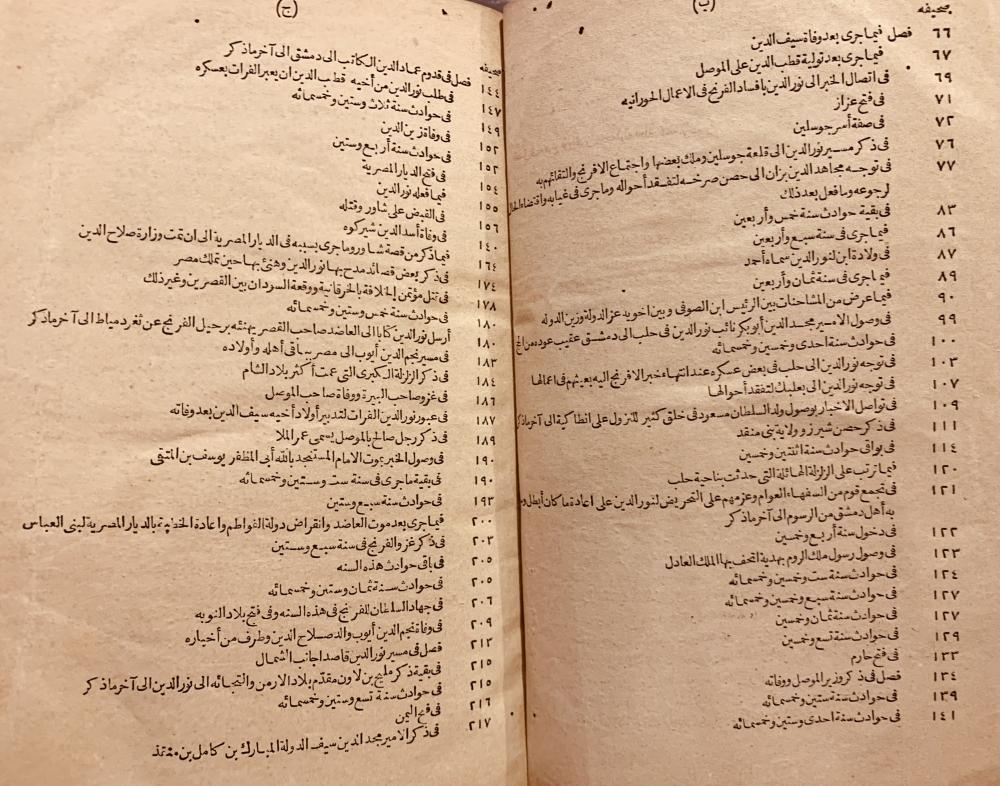 (ب)
صحيفه
٦٦ فصل فيما جرى بعد وفاة سيف الدين
٦٧ فيما جرى بعد تولية قطب الدين على الموصل
٦٩ فى اتصال الخبر الى نور الدين بافساد الفرنج فى الاعمال الحورانيه
٧١ فى فتح عزاز
٧٢ فى صفة أسر جوسلين
٧٦ فى ذكر مسير نور الدين الى قلعة جوسلين وملك بعضها واجتماع الافرنج والتقائهم به
٧٧ فى توجه مجاهد الدين بزان الى حصن صرخد لتفقد أحواله وماجرى فى غيابه واقتضاء الحال
لرجوعه وما فعل بعد ذلك
٨٣ فى بقية حوادث سنة خمس وأربعين
٨٦ فيما جرى فى سنة سبع وأربعين
٨٧ فى ولادة ابن لنور الدين سماه أحمد
٨٩ فيما جرى فى سنة ثمان وأربعين
٩٠ فيما عرض من المشاحنات بين الرئيس ابن الصوفى وبين اخويه عز الدولة وزين الدوله
٩٩ فى وصول الامير مجد الدين أبو بكر نائب نور الدين فى حلب الى دمشق عقيب عوده من الحج
١٠٠ فى حوادث سنة احدى وخمسين وخمسمائه
١٠٣ فى توجه نور الدين الى حلب فى بعض عسكره عند انتهاء خبر الافرنج اليه بعيثهم فى اعمالها
١٠٧ فى توجه نور الدين الى بعلبك لتفقد أحوالها
١٠٩ فى تواصل الاخبار بوصول ولد السلطان مسعود فى خلق كثير للنزول على انطاكية الى آخر ماذكر
١١١ فى ذكر حصن شيزر وولاية بنى منقد
١١٤ فى بواقى حوادث سنة اثنتين وخمسين
١٢٠ فيما ترتب على الزلزلة الهائلة التى حدثت بناحية حلب
١٢١ فى تجمع قوم من السفهاء العوام وعزمهم على التحريض لنور الدين على اعادة ما كان أبطل
به أهل دمشق من الرسوم الى آخر ماذكر
١٢٢ فى دخول سنة أربع وخمسين
١٢٣ فى وصول رسول ملك الروم بهدية اتحف بها الملك العادل
١٢٤ فى حوادث سنة ست وخمسين وخمسمائه
١٢٧ فى حوادث سنة سبع وخمسين وخمسمائه
١٢٧ فى حوادث سنة ثمان وخمسين
١٢٩ فى حوادث سنة تسع وخمسين
١٣٣ فى فتح حارم
١٣٤ فصل فى ذكر وزير الموصل ووفاته
١٣٩ فى حوادث سنة ستين وخمسمائه
١٤١ فى حوادث سنة احدى وستين وخمسمائه
(ج)
صحيفه
١٤٤ فصل فى قدوم عماد الدين الكاتب الى دمشق الى آخر ماذكر
١٤٧ فى طلب نور الدين من أخيه قطب الدين ان يعبر الفرات بعسكره
١٤٩ فى حوادث سنة ثلاث وستين وخمسمائه
١٥٢ فى وفاة زين الدين
١٥٢ فى حوادث سنة أربع وستين
١٥٤ فى فتح الديار المصرية
١٥٥ فيما فعله نور الدين
١٥٦ فى القبض على شاور وقتله
١٤٠ فى وفاة أسد الدين شيركوه
١٦٤ فيما ذكر من قصة شاور وماجرى بسببه فى الديار المصرية الى ان تمت وزارة صلاح الدين
١٧٤ فى ذكر بعض قصائد مدح بها نور الدين وهنئ بها حين تملك مصر
١٧٨ فى قتل مؤتمن الخلافة بالخرقانية ووقعة السودان بين القصرين وغير ذلك
١٨٠ فى حوادث سنة خمس وستين وخمسمائه
١٨٠ أرسل نور الدين كتابا الى العاضد صاحب القصر يهنئه برحيل الفرنج عن ثغر دمياط الى آخر ماذكر
١٨٣ فى مسير نجم الدين أيوب الى مصر بباقى أهله وأولاده
١٨٤ فى ذكر الزلزلة الكبرى التى عمت أكثر بلاد الشام
١٨٦ فى غزو صاحب البيرة ووفاة صاحب الموصل
١٨٧ فى عبور نور الدين الفرات لتدبير أولاد أخيه سيف الدين بعد وفاته
١٨٩ فى ذكر رجل صالح بالموصل يسمى عمر الملا
١٩٠ فى وصول الخبر بموت الامام المستنجد بالله أبى المظفر يوسف بن المقتفى
١٩٠ فى بقية ماجرى فى سنة ست وستين وخمسمائه
١٩٣ فى حوادث سنة سبع وستين
٢٠٠ فيما جرى بعد موت العاضد وانقراض دولة الفواطم واعادة الخطبة بالديار المصرية لبنى العباس
٢٠٣ فى ذكر غزو الفرنج فى سنة سبع وستين
٢٠٥ فى باقى حوادث هذه السنه
٢٠٥ فى حوادث سنة ثمان وستين وخمسمائه
٢٠٦ فى جهاد السلطان للفرنج فى هذه السنه وفى فتح بلاد النوبه
٢٠٩ فى وفاة نجم الدين أيوب والد صلاح الدين وطرف من أخباره
٢١٣ فصل فى مسير نور الدين قاصدا جانب الشمال
٢١٥ فى بقية ذكر مليح بن لاون مقدم بلاد الارمن والتجائه الى نور الدين الى آخر ماذكر
٢١٥ فى حوادث سنة تسع وستين وخمسمائه
٢١٦ فى فتح اليمن
٢١٧ فى ذكر الامير مجد الدين سيف الدولة المبارك بن كامل بن منقذ